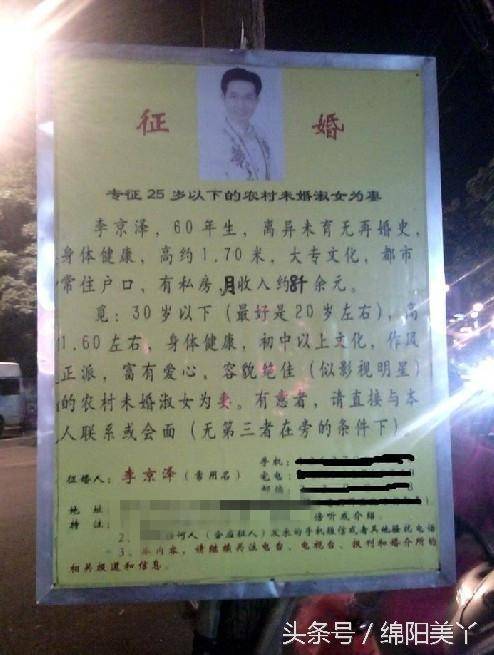 征 婚
专征25岁以下的农村未婚淑女为妻
李京泽，60年生，离异未育无再婚史，
身体健康，高约1.70米，大专文化，都市
常住户口，有私房，月收入约8千余元。
觅：30岁以下（最好是20岁左右），高
1.60左右，身体健康，初中以上文化，作风
正派，富有爱心，容貌绝佳（似影视明星）
的农村未婚淑女为妻。有意者，请直接与本
人联系或会面（无第三者在旁的条件下）。
手机：
征婚人：李京泽（常用名） 宅电：
邮编：
地 址：
特 注： 传听或介绍。
2、 何人（含应征人）发来的手机短信或者其他骚扰电话
3、 内容，请继续关注电台、电视台、报刊和婚介所的
相关报道和信息。
头条号／绵阳美丫